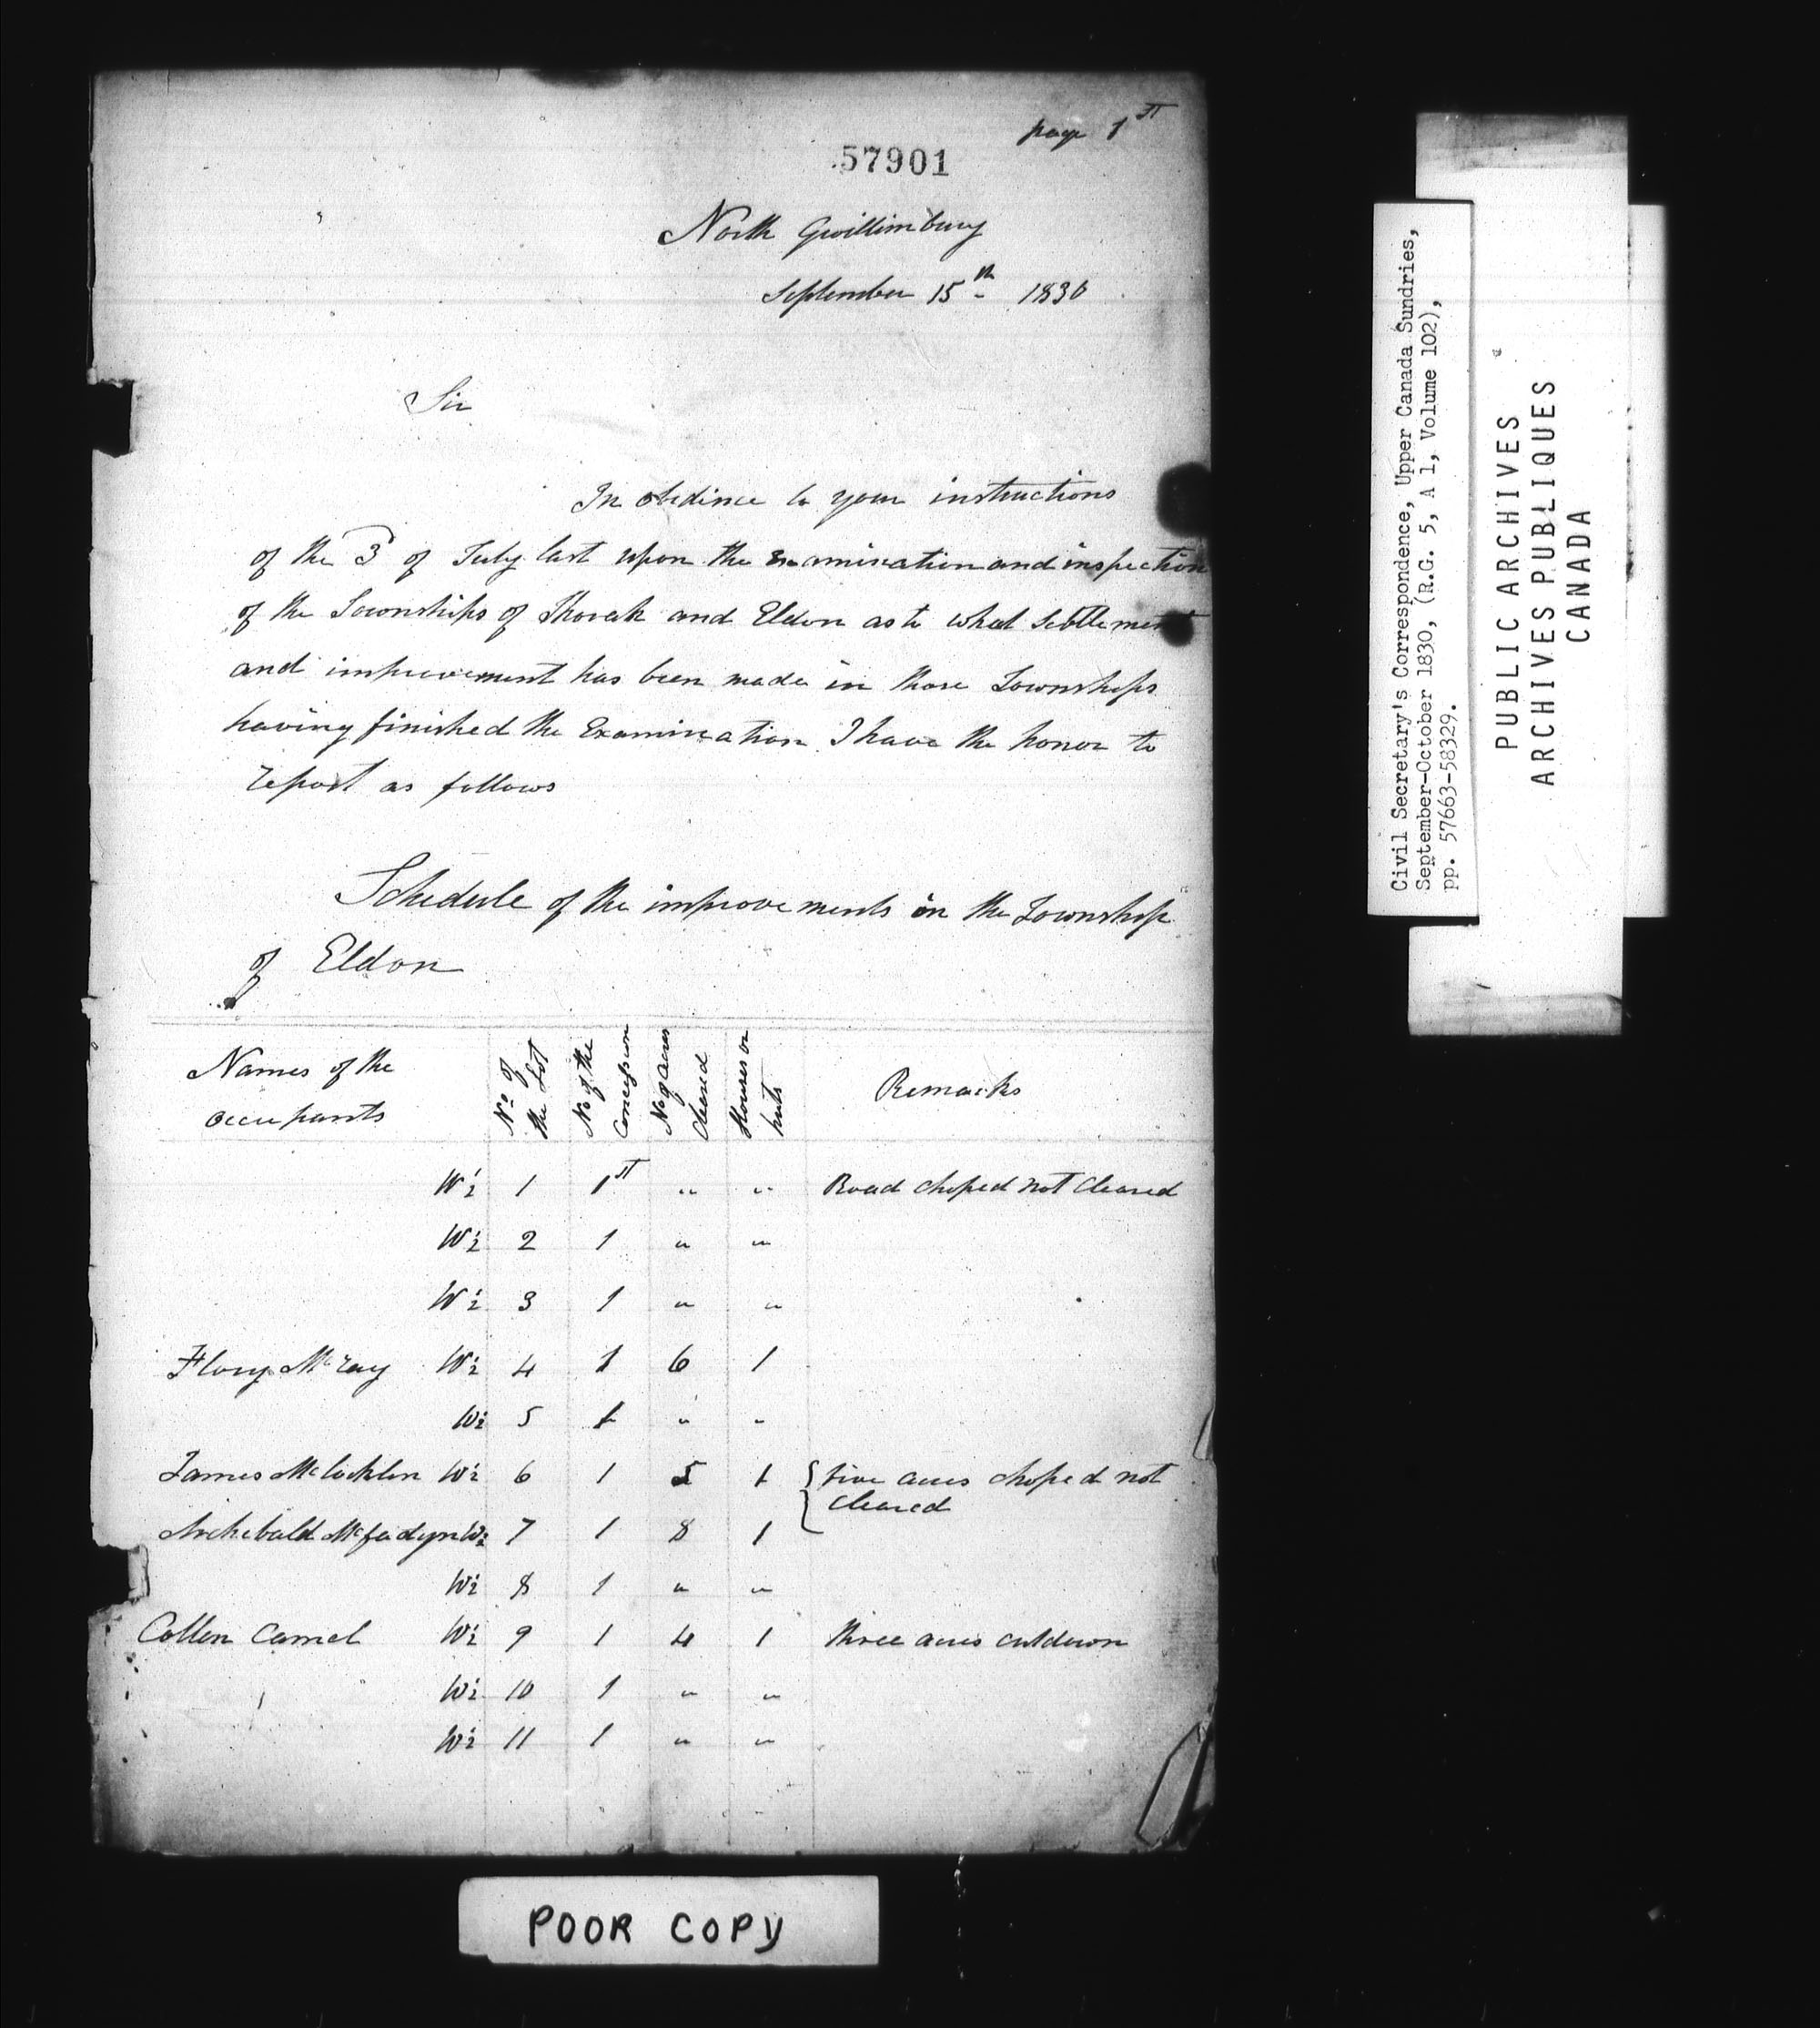 page 1st
57901
North Gwillimbury
September 15th 1830
Sir
In obedince to your instructions
of the 3 of July last upon the Examination and inspection
of the Townships of Thorah and Eldon as to what Settlement
and improvement has been made in those Townships
having finished the Examination I have the honor to
report as follows
Schedule of the improvements in the Township
of Eldon
Names of the occupants | No. of the Lot | No of the Concession | No of acres cleared | Houses or huts | Remarks
W½ 1 1st " " Road choped not cleared
W½ 2 1 " "
W½ 3 1 " "
Flory McRay W½ 4 1 6 1
W½ 5 1 " "
James McLochlin W½ 6 1 5 1 { five acres choped not
cleared
Archebald Mcfadyn W½ 7 1 8 1
W½ 8 1 " "
Collen Camel W½ 9 1 4 1 three acres cutdown
W½ 10 1 " "
W½ 11 1 " "
POOR COPY
Civil Secretary's Correspondence, Upper Canada Sundries,
September-October 1830, (R.G. 5, A 1, Volume 102),
pp. 57663-58329.
PUBLIC ARCHIVES
ARCHIVES PUBLIQUES
CANADA